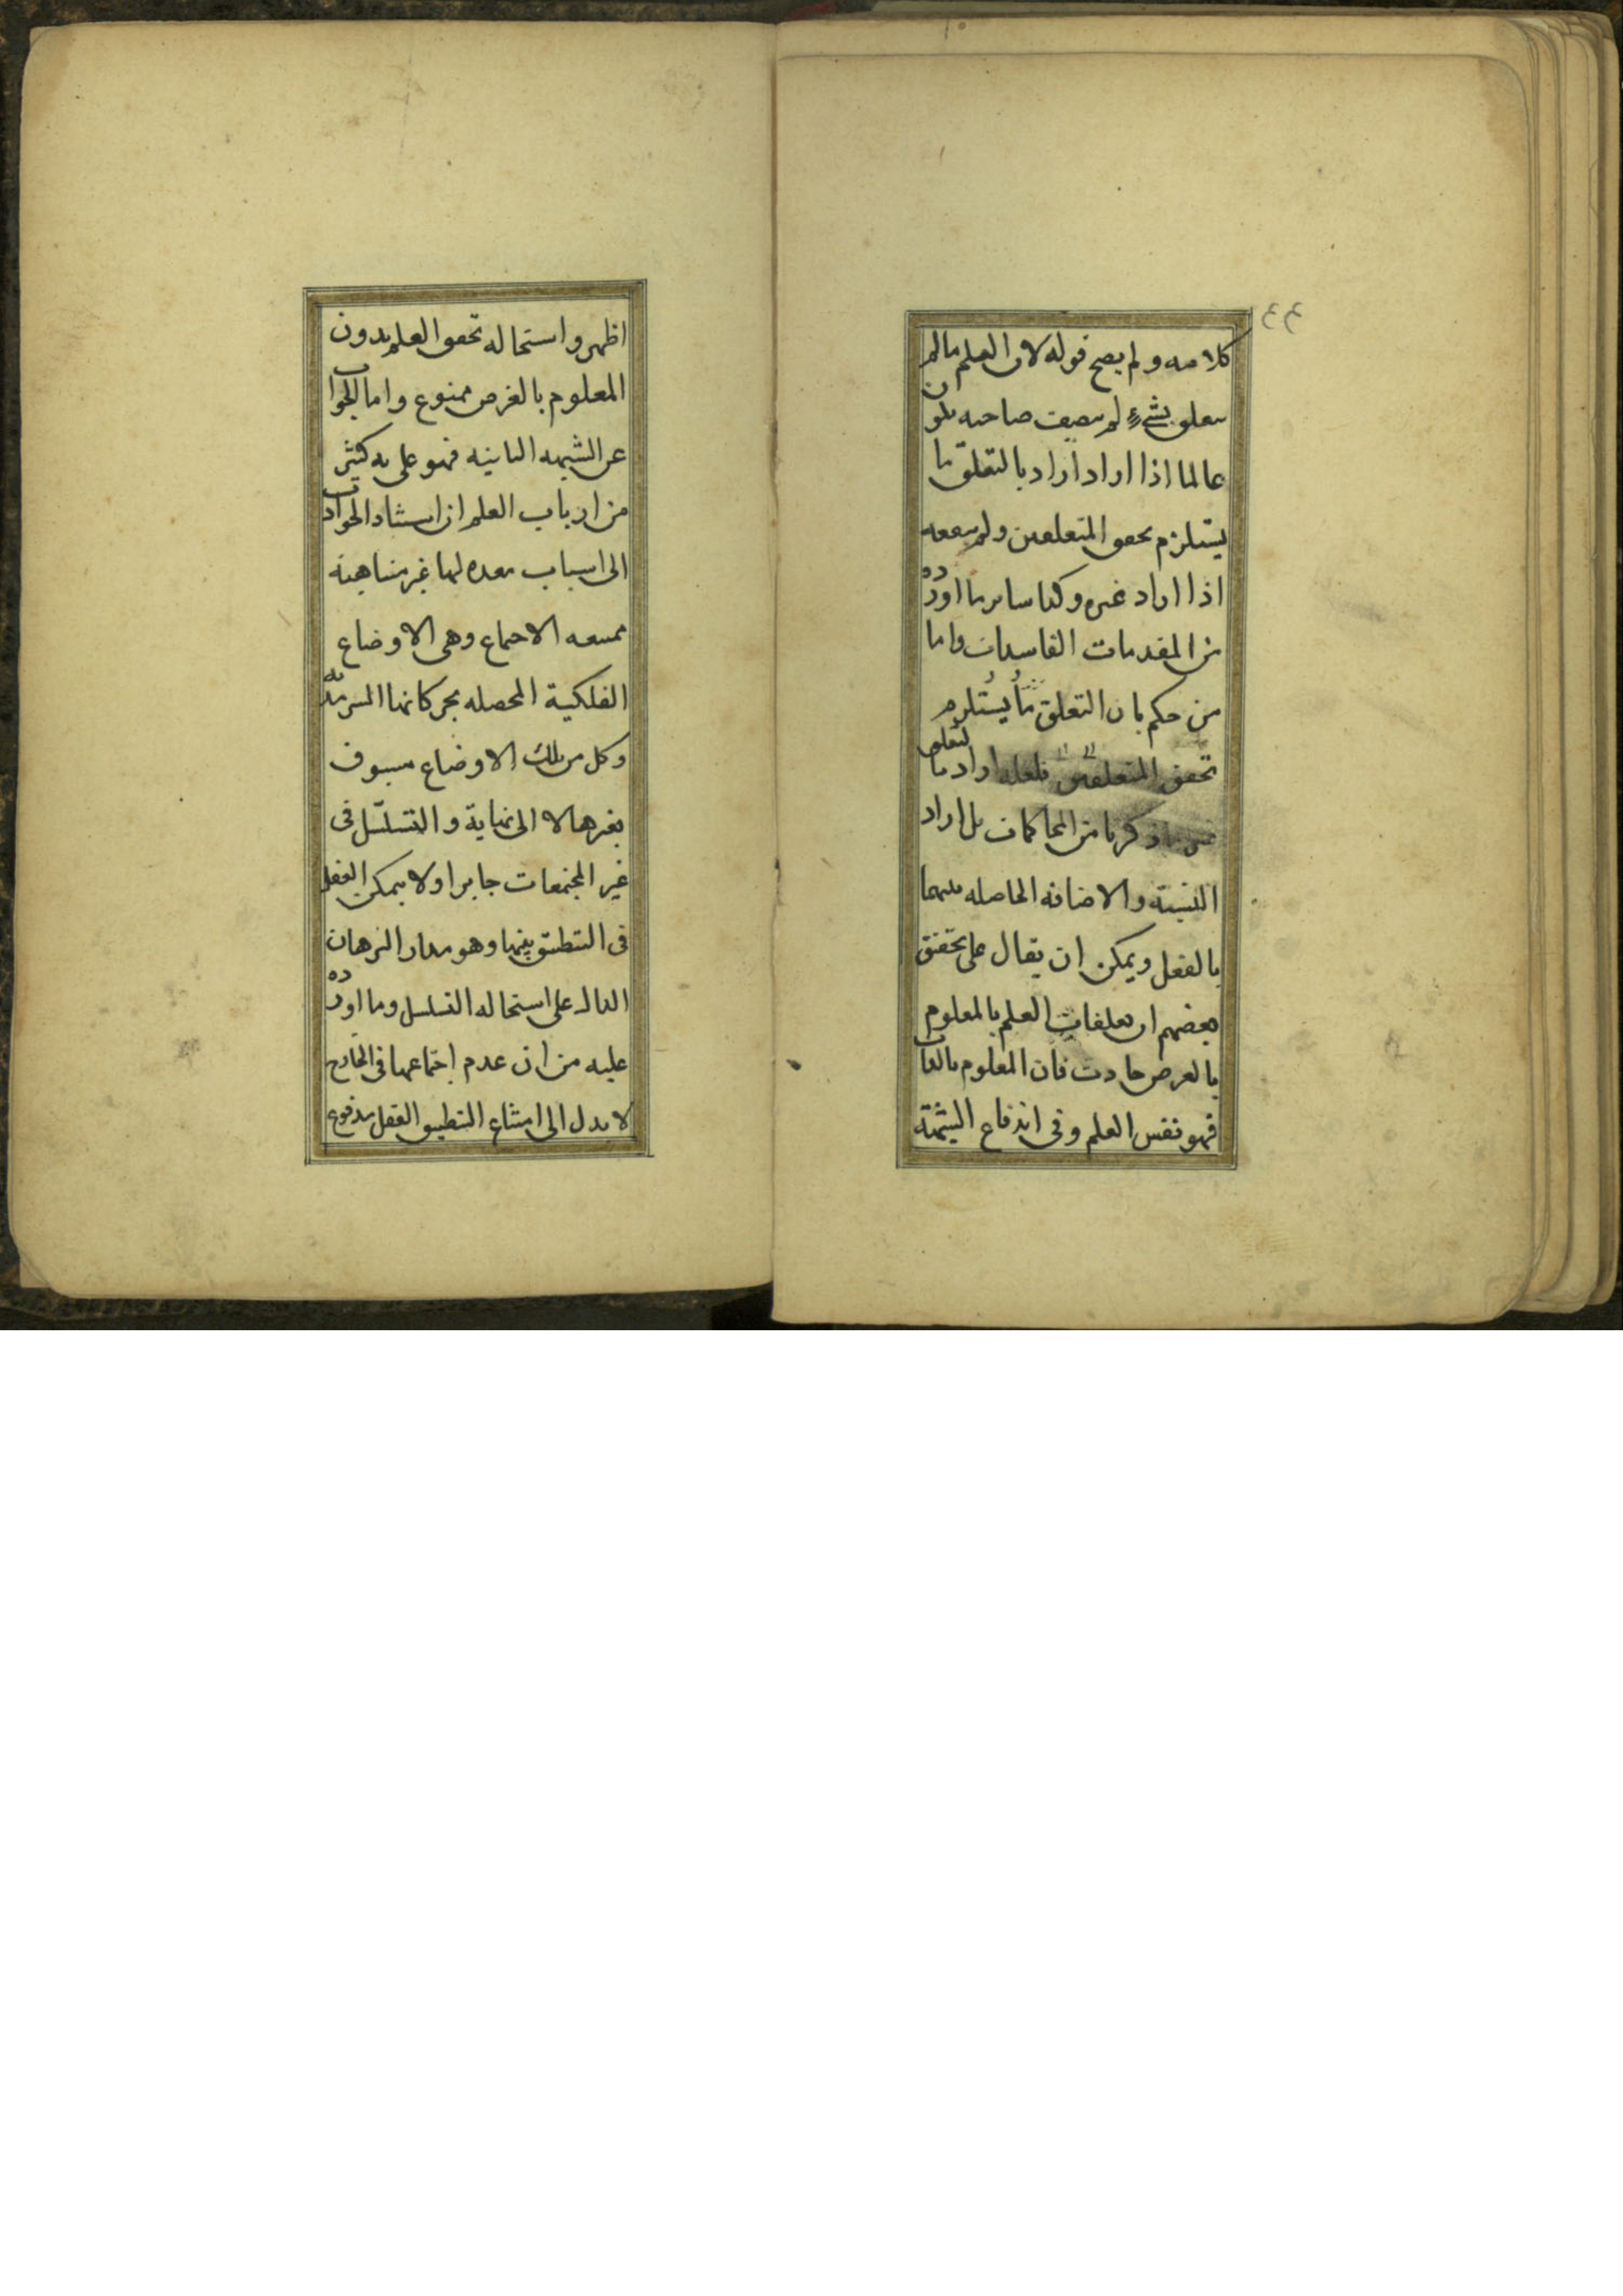 ٤٤
كلامه ولم يصح قوله لان العلم ما لم
يتعلق بشیء لم يصف صاحبه بكون
عالما اذا اراد اراد بالتعلق ما
يستلزم تحقق المتعلقين ولم ينفعه
اذا اراد غيره وكذا ساير ما اورده
من المقدمات الفاسدات واما
من حكم بان التعلق مما يستلزم
تحقق المتعلقين فلعله اراد بالتعلق
ذكرنا من المحاكات بل اراد
النسبة والاضافه الحاصله بينهما
بالفعل ويمكن ان يقال على تحقيق
بعضهم ان تعلقات العلم بالمعلوم
بالعرض حادث فان المعلوم بالذات
فهو نفس العلم وفى اندفاع الشبهة
اظهر واستحاله تحقق العلم بدون
المعلوم بالعرض ممنوع واما الجواب
عن الشبهه الثانيه فهو على به كثير
من ارباب العلم ان استناد الحوادث
الى اسباب معده لها غير متناهية
ممتنعه الاجتماع وهى الاوضاع
الفلكية المحصله بحركاتها السرمدية
وكل من تلك الاوضاع مسبوق
بغيرها لا الى نهاية والتسلسل فى
غير المجتمعات جايز اولا يمكن العقل
فى التطبيق بينها وهو مدار البرهان
الدال على استحاله التسلسل وما اورده
عليه من ان عدم اجتماعها فى الخارج
لا يدل الى امتناع التطبيق العقل مدفوع